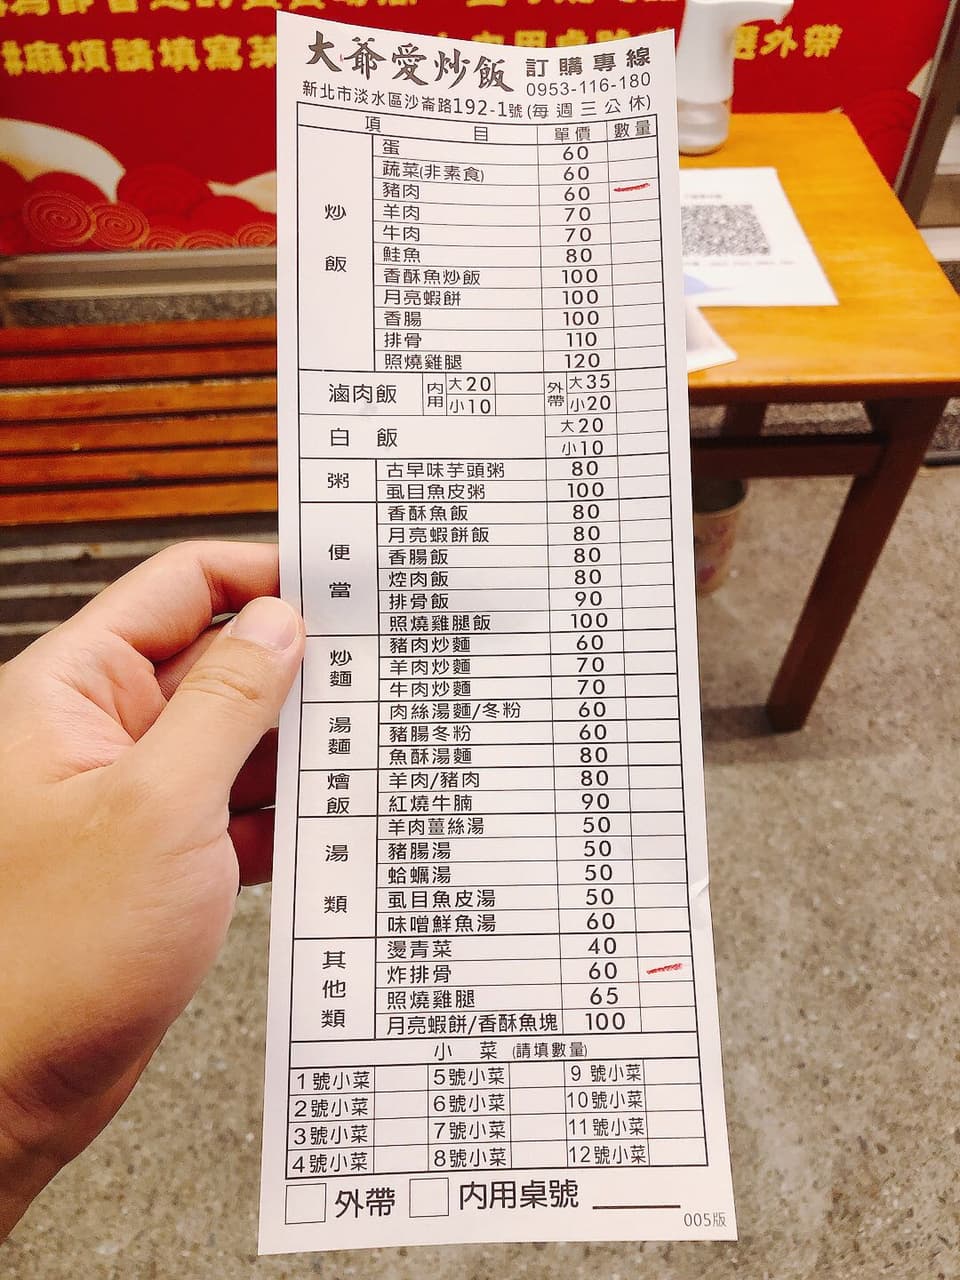 #麻煩請填寫菜
選外帶
大爺愛炒飯 訂購專線
0953-116-180
新北市淡水區沙崙路192-1號(每週三公休)
項目 單價 數量
炒飯
蛋 60
蔬菜(非素食) 60
豬肉 60
羊肉 70
牛肉 70
鮭魚 80
香酥魚炒飯 100
月亮蝦餅 100
香腸 100
排骨 110
照燒雞腿 120
滷肉飯 內用 大20 小10 外帶 大35 小20
白飯 大20 小10
粥
古早味芋頭粥 80
虱目魚皮粥 100
便當
香酥魚飯 80
月亮蝦餅飯 80
香腸飯 80
焢肉飯 80
排骨飯 90
照燒雞腿飯 100
炒麵
豬肉炒麵 60
羊肉炒麵 70
牛肉炒麵 70
湯麵
肉絲湯麵/冬粉 60
豬腸冬粉 60
魚酥湯麵 80
燴飯
羊肉/豬肉 80
紅燒牛腩 90
湯類
羊肉薑絲湯 50
豬腸湯 50
蛤蠣湯 50
虱目魚皮湯 50
味噌鮮魚湯 60
其他類
燙青菜 40
炸排骨 60
照燒雞腿 65
月亮蝦餅/香酥魚塊 100
小菜 (請填數量)
1號小菜 5號小菜 9號小菜
2號小菜 6號小菜 10號小菜
3號小菜 7號小菜 11號小菜
4號小菜 8號小菜 12號小菜
外帶 內用桌號
005版